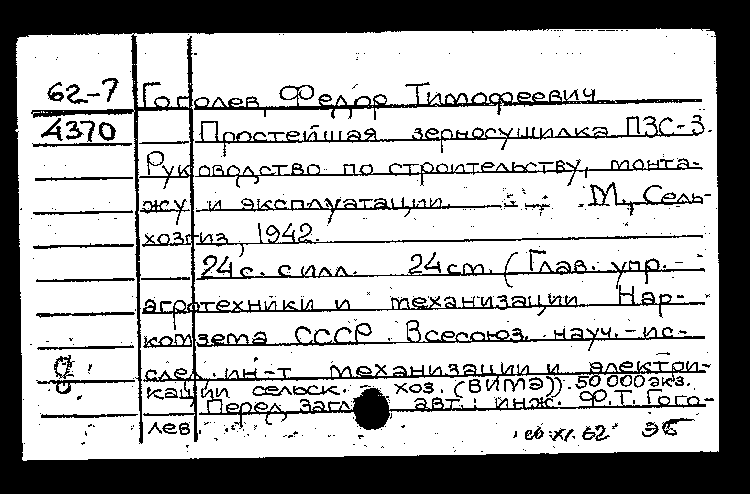 62-7 Гоголев, Федор Тимофеевич
4370 Простейшая зерносушилка ПЗС-3.
Руководство по строительству, монта-
жу и эксплуатации. М., Сель-
хозгиз, 1942.
24 с. с илл. 24 см. (Глав. упр.
агротехники и механизации Нар-
комзема СССР. Всесоюз. науч.-ис-
след. ин-т механизации и электри-
кации сельск. хоз. (ВИМЭ)). 50 000 экз.
Перед загл. авт.: инж. Ф. Т. Гого-
лев.
XI.62